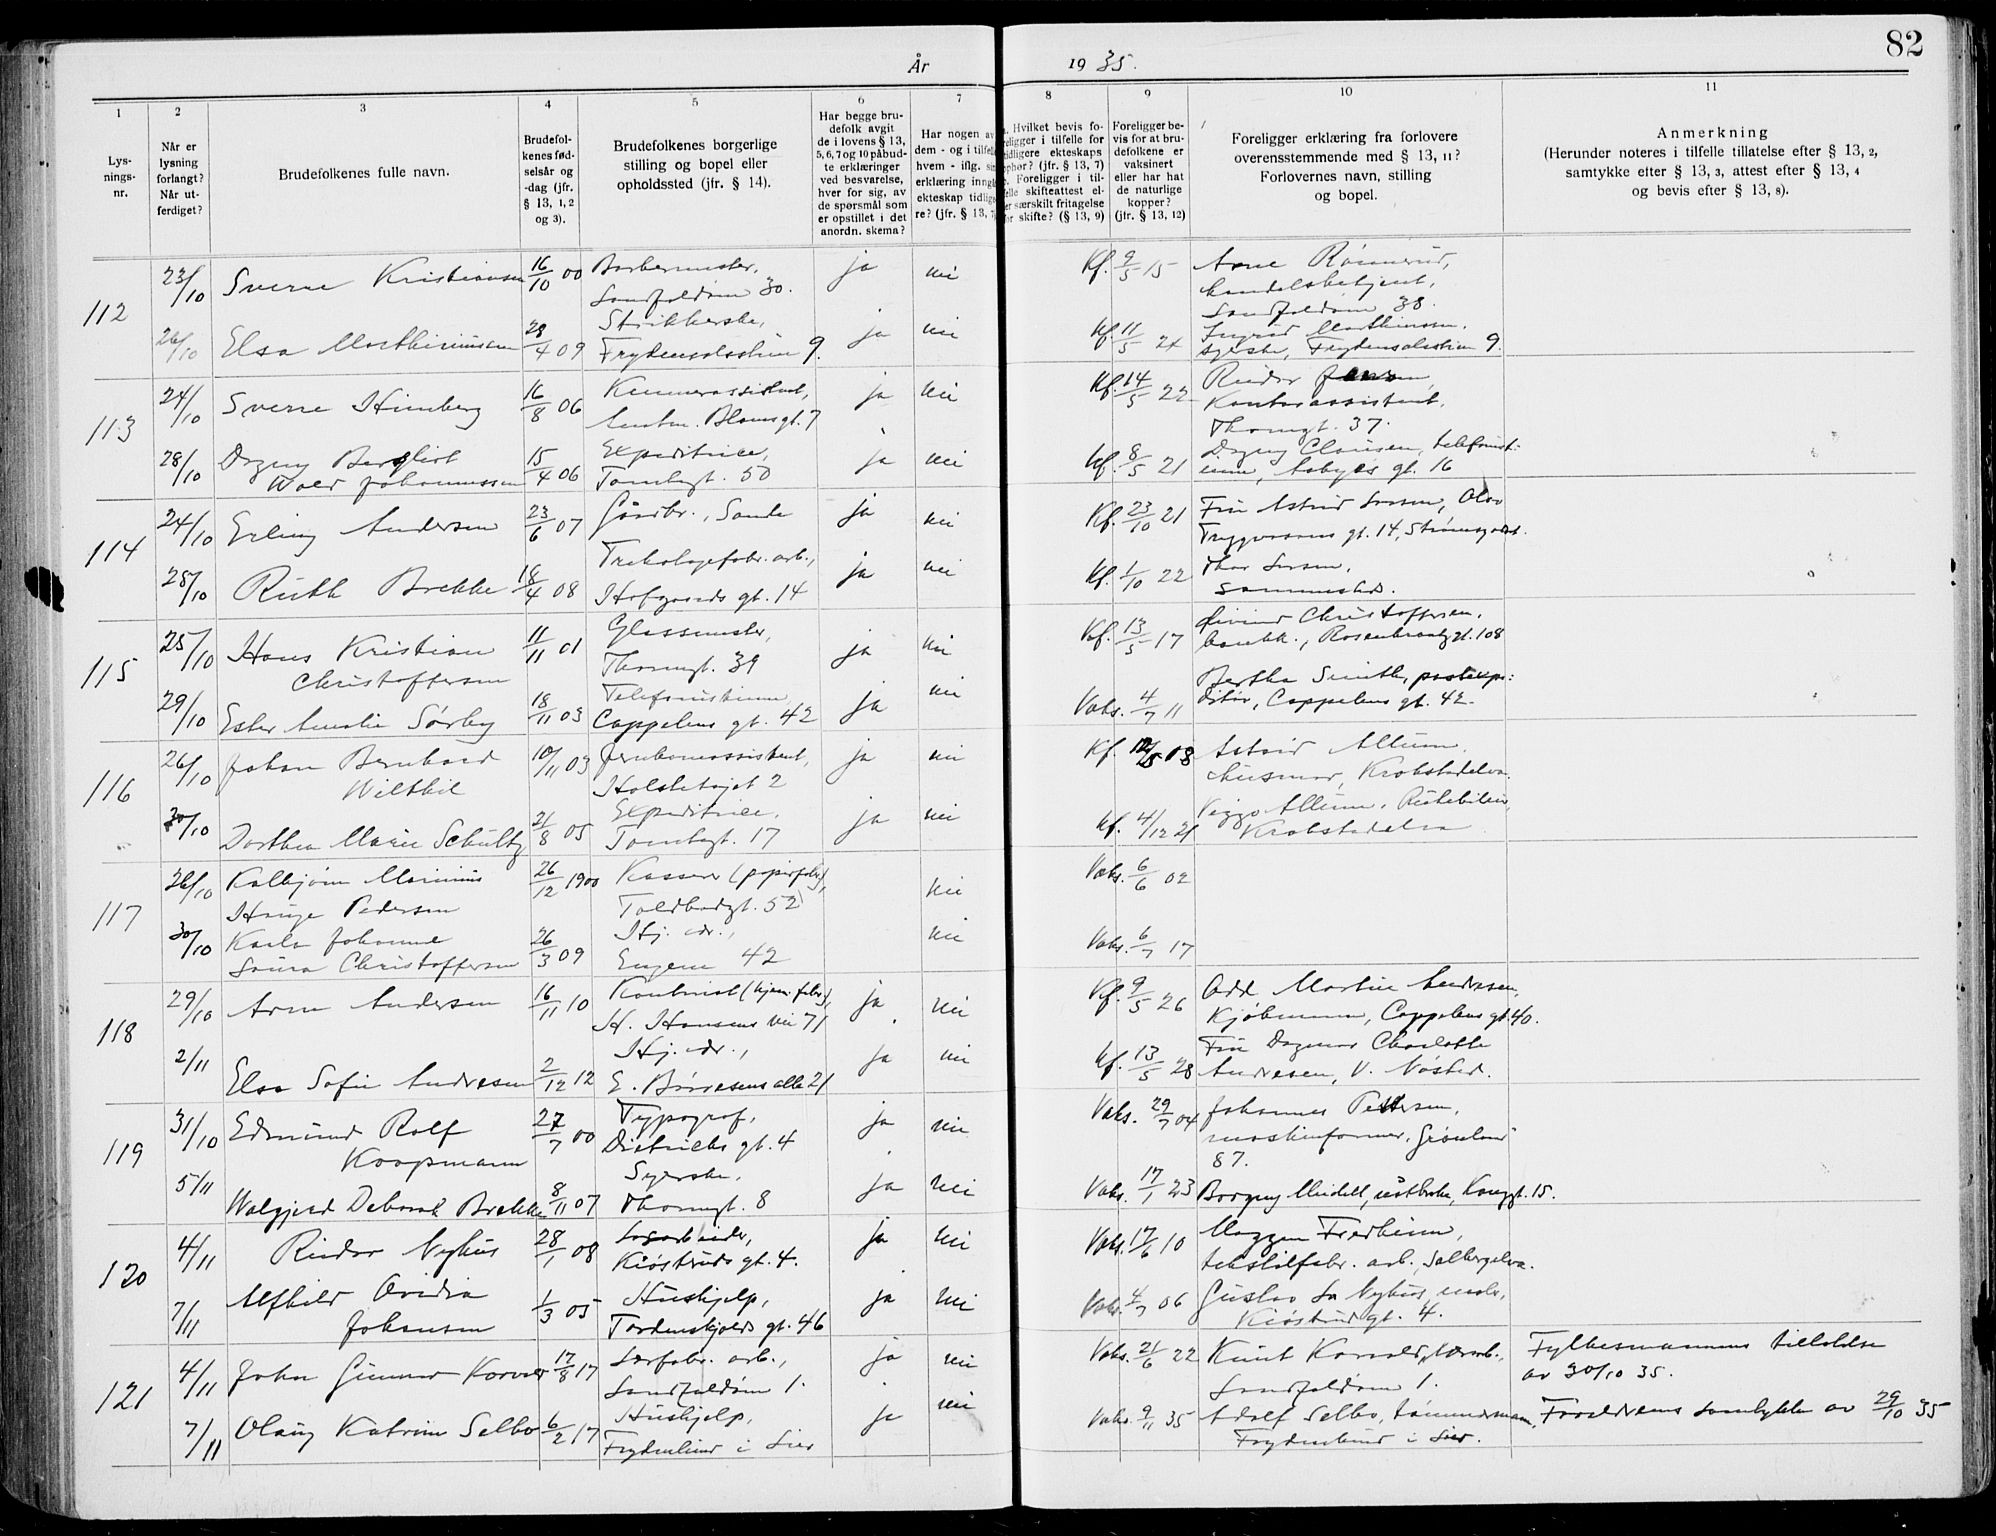 År 1935.
82
1 2 3 4 5 6 7 8 9 10 11
Lys-
nings-
nr.
Når er
lysning
forlangt?
Når ut-
ferdiget?
Brudefolkenes fulle navn.
Brudefol-
kenes fød-
selsår og
-dag (jfr.
§ 13, 1, 2
og 3).
Brudefolkenes borgerlige
stilling og bopel eller
opholdssted (jfr. § 14).
Har begge bru-
defolk avgit
de i lovens § 13,
5, 6, 7 og 10 påbud-
te erklæringer
ved besvarelse,
hver for sig, av
de spørsmål som
er opstillet i det
anordn. skema?
Har nogen av
dem - og i tilfelle
hvem - iflg. sin
erklæring inngå
ekteskap tidlige
re? (jfr. § 13, 7
Hvilket bevis fo-
religger i tilfelle for
tidligere ekteskaps
ophør? (jfr. § 13, 7)
Foreligger i til-
felle skifteattest el-
er særskilt fritagelse
for skifte? (§ 13, 9)
Foreligger be-
vis for at bru-
defolkene er
vaksinert
eller har hat
de naturlige
kopper?
(jfr. § 13, 12)
Foreligger erklæring fra forlovere
overensstemmende med § 13, 11?
Forlovernes navn, stilling
og bopel.
Anmerkning
(Herunder noteres i tilfelle tillatelse efter § 13, 2,
samtykke efter § 13, 3, attest efter § 13, 4
og bevis efter § 13, 8).
112
23/10 Sverre Kristiansen 16/10 00 Barbermester, ja nei Kf. 9/5 15 Arne Rønnerud,
Landfaldøen 30. handelsbetjent,
Landfaldøen 38.
26/10 Elsa Marthinussen 28/4 09 Strikkerske, ja nei Kf. 11/5 24 Ingrid Marthinussen,
Frydensalsstien 9. syerske, Frydensalsstien 9.
113
24/10 Sverre Himberg 16/8 06 Kemnerassistent, ja nei Kf. 14/5 22 Reidar Jensen,
Anton Blomsgt. 7 Kontorassistent,
Thornegt. 37.
28/10 Dagny Bergliot 15/4 06 Expeditrice, ja nei Kf. 8/5 21 Dagny Clausen, telefonist-
Wold Johannessen Tomtegt. 50 inne, Aabyes gt. 16
114
24/10 Erling Andersen 23/6 07 Gårdbr., Sande ja nei Kf. 23/10 21 Fru Astrid Larsen, Olav
Tryggvasons gt. 14, Strømsgodset.
28/10 Ruth Brekke 18/4 08 Trikotagefabr. arb., ja nei Kf. 1/10 22 Thor Larsen,
Hofgaards gt. 14 sammesteds.
115
25/10 Hans Kristian 11/11 01 Glassmester, ja nei Kf. 13/5 17 Øivind Christoffersen,
Christoffersen Thornegt. 39 Rosenkrantzgt. 108
29/10 Ester Amalie Sørby 18/11 03 Telefonistinne ja nei Vaks. 4/7 11 Bertha Smith, postexpe-
Cappelens gt. 42 ditør, Cappelens gt. 42.
116
26/10 Johan Bernhard 10/11 03 Jernbaneassistent, ja nei Kf. 08 Astrid Allum,
Wiltbil Holstetøjet 2 husmor, Krokstadelva.
30/10 Dorthea Marie Schultz 21/8 05 Expeditrice, ja nei Kf. 4/12 21 Viggo Allum, Rutebileier,
Tomtegt. 17 Krokstadelva
117
26/10 Kolbjørn Marinius 26/12 1900 Kasserer (papirfabr.), nei Vaks. 6/6 02
Hauge Pedersen Toldbodgt. 52
30/10 Karla Johanne 26/3 09 Hj. vær., nei Vaks. 6/7 17
Laura Christoffersen Engene 42
118
29/10 Arne Andersen 16/11 10 Kontorist (hjem. fabr.), ja nei Kf. 9/5 26 Odd Martin Andresen,
H. Hansens vei 71 Kjøbmann, Cappelens gt. 40.
2/11 Elsa Sofie Andresen 2/12 12 Hj. vær., ja nei Kf. 13/5 28 Fru Dagmar Charlotte
E. Børresens allé 21 Andresen, V. Nøsted.
119
31/10 Edmund Rolf 27/7 00 Typograf, ja nei Vaks. 29/7 04 Johannes Pettersen,
Koopmann Dietrichs gt. 4 maskinformer, Grønland
87.
5/11 Walgjerd Deborah Brekke 8/11 07 Syerske, ja nei Vaks. 17/1 23 Borgny Meidell, Konggt. 15.
Thornegt. 8
120
4/11 Reidar Nyhus 28/1 08 Løsarbeider, ja nei Vaks. 17/6 10 Maggen Fredheim,
Kiøsterudsgt. 4. tekstilfabr. arb., Solbergelva.
7/11 Alfhild Ovidia 1/3 05 Hushjelp, ja nei Vaks. 4/7 06 Gustav La Nyhus, maler,
Johansen Tordenskjolds gt. 46 Kiøsterudgt. 4.
121
4/11 John Gunnar Korvald 17/8 17 Lærfabr. arb., ja nei Vaks. 21/6 22 Knut Korvald, Lærarb., Fylkesmannens tillatelse
Landfaldøen 1. Landfaldøen 1. av 30/10 35.
7/11 Olaug Katrine Selbo 6/2 17 Hushjelp, ja nei Vaks. 9/11 35 Adolf Selbo, tømmermann, Foreldrenes samtykke av 29/10 35
Frydenlund i Lier Frydenlund i Lier.